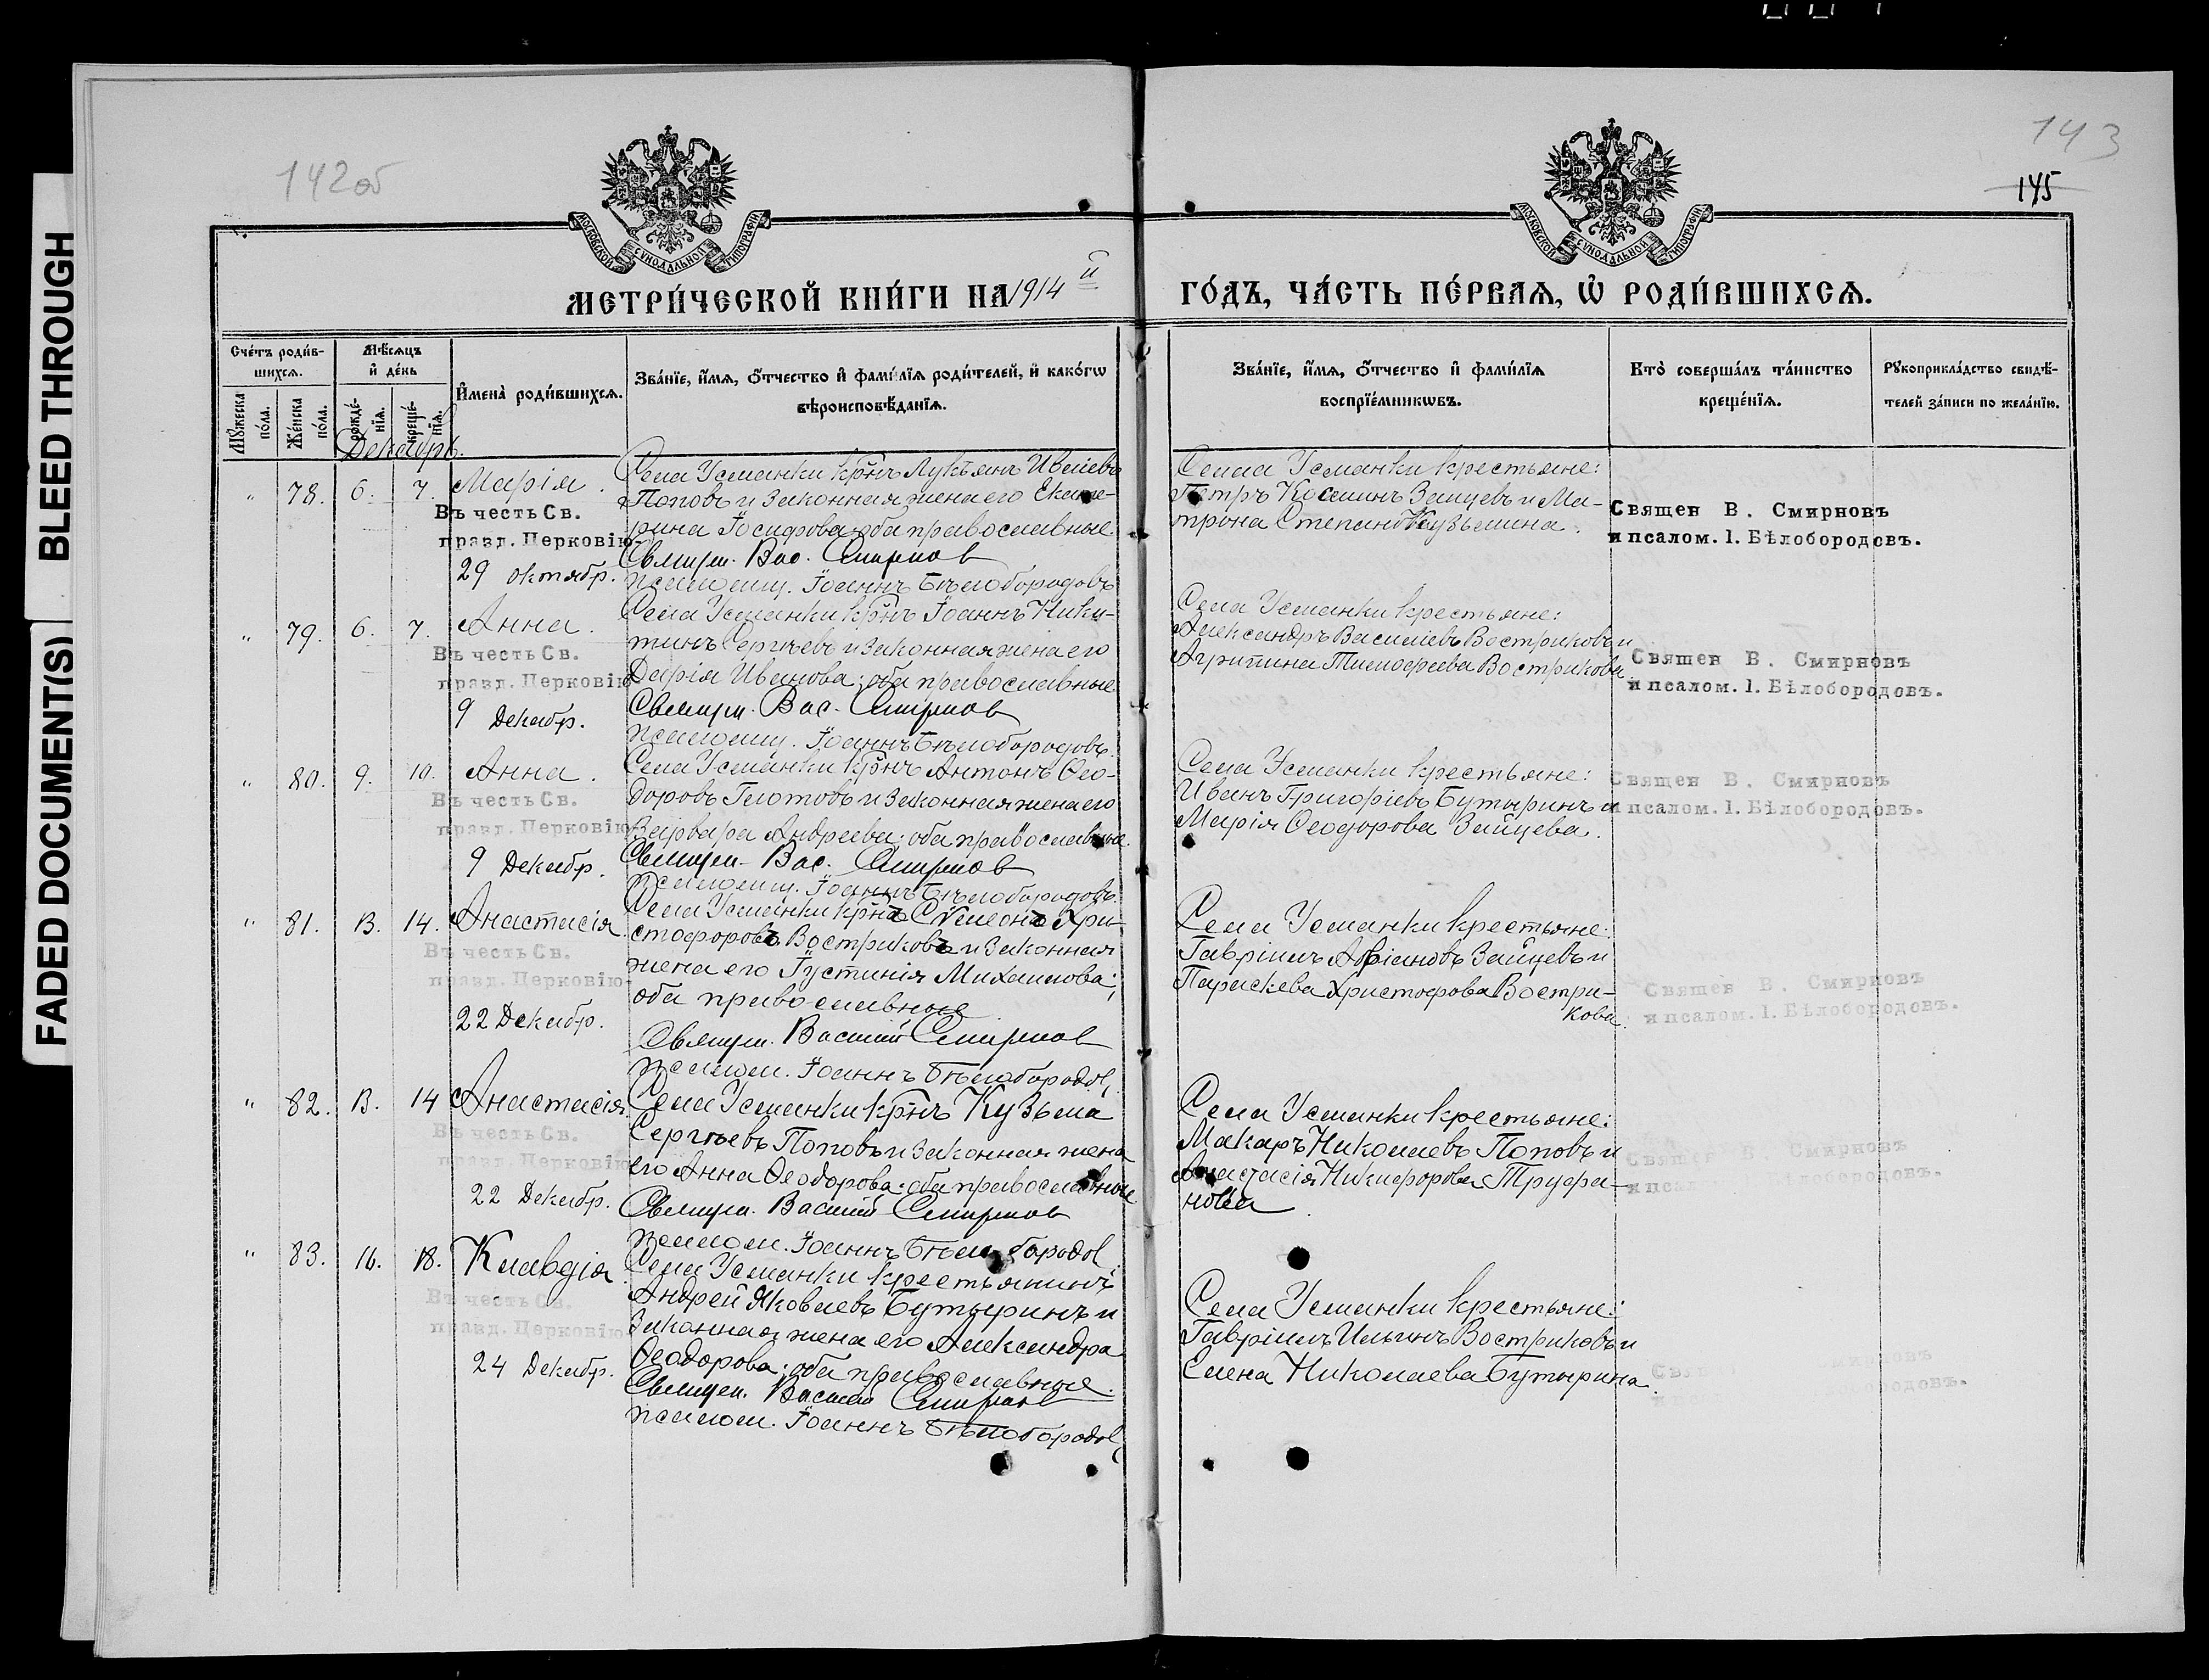 FADED DOCUMENT(S)
BLEED THROUGH
142 об
143
145
МОСКОВСКОЙ СѴНОДАЛЬНОЙ ТИПОГРАФІИ
МОСКОВСКОЙ СѴНОДАЛЬНОЙ ТИПОГРАФІИ
МЕТРИ́ЧЕСКОЙ КНИ́ГИ НА 1914 й
ГО́ДЪ, ЧА́СТЬ ПЕ́РВАѦ, Ѡ҆ РОДИ́ВШИХСѦ.
Сче́тъ роди́в-
шихсѧ.
Мꙋ́жеска по́ла.
Же́нска по́ла.
Мѣ́сѧцъ
и҆ де́нь
рожде́-
нїѧ.
креще́-
нїѧ.
И҆мена̀ роди́вшихсѧ.
Зва́нїе, и҆́мѧ, ѻ҆́тчество и҆ фами́лїѧ роди́телей, и҆ како́гѡ
вѣроисповѣ́данїѧ.
Зва́нїе, и҆́мѧ, ѻ҆́тчество и҆ фами́лїѧ
воспрїе́мникѡвъ.
Кто̀ соверша́лъ та́инство
креще́нїѧ.
Рꙋкоприкла́дство свидѣ́-
телей за́писи по жела́нїю.
Декабрь.
" 78. 6. 7. Марія.
Въ честь Св.
правд. Церковію
29 октябр.
Села Усманки кр̃нъ Лукъянъ Ивлiевъ
Поповъ и законная жена его Екате-
рина Іосифова; оба православные
Священ. Вас. Смирнов
псаломщ. Іоаннъ Бѣлобородовъ
Села Усманки крестьяне:
Петръ Косминъ Зайцевъ и Ма-
трона Степанов Кузьмина.
Священ В. Смирновъ
и псалом. І. Бѣлобородовъ.
" 79. 6. 7. Анна.
Въ честь Св.
правд. Церковію
9 Декабр.
Села Усманки кр̃нъ Іоаннъ Ники-
тинъ Сергѣевъ и законная жена его
Дарія Иванова; оба православные
Священ. Вас. Смирнов
псаломщ. Іоаннъ Бѣлобородовъ.
Села Усманки крестьяне:
Александръ Василіевъ Востриковъ и
Агрипина Тимофеева Вострикова
Священ В. Смирновъ
и псалом. І. Бѣлобородовъ.
" 80. 9. 10. Анна.
Въ честь Св.
правд. Церковію
9 Декабр.
Села Усманки кр̃нъ Антонъ Ѳео-
доровъ Глотовъ и законная жена его
Варвара Андреева; оба православные.
Священ. Вас. Смирнов
псаломщ. Іоаннъ Бѣлобородовъ.
Села Усманки крестьяне:
Иванъ Григоріевъ Бутыринъ и
Марія Ѳеодорова Зайцева.
Священ В. Смирновъ
и псалом. І. Бѣлобородовъ.
" 81. 13. 14. Анастасія
Въ честь Св.
правд. Церковію
22 Декабр.
Села Усманки кр̃нъ Сѷмеонъ Хри-
стофоровъ Востриковъ и законная
жена его Іустинія Михаилова;
оба православные
Священ. Василій Смирнов
псаломщ. Іоаннъ Бѣлобородов,
Села Усманки крестьяне:
Гавріилъ Адріановъ Зайцевъ и
Параскева Христофова Востри-
кова.
Священ В. Смирновъ
и псалом. І. Бѣлобородовъ.
" 82. 13. 14 Анастасія.
Въ честь Св.
правд. Церковію
22 Декабр.
Села Усманки кр̃нъ Кузьма
Сергѣевъ Поповъ и законная жена
его Анна Ѳеодорова; оба православные
Священ. Василій Смирнов
псалом. Іоаннъ Бѣлобородов
Села Усманки крестьяне:
Макаръ Николаевъ Поповъ и
Анастасія Никифорова Труфа-
нова
Священ В. Смирновъ
и псалом. І. Бѣлобородовъ.
" 83. 16. 18. Клавдія
Въ честь Св.
правд. Церковію
24 Декабр.
Села Усманки крестьянинъ
Андрей Яковлевъ Бутыринъ и
законная жена его Александра
Ѳеодорова; оба православные.
Священ. Василій Смирнов
псалом. Іоаннъ Бѣлобородов,
Села Усманки крестьяне:
Гавріилъ Ильинъ Востриковъ и
Елена Николаева Бутырина.
Свящ Смирновъ
и бородовъ.